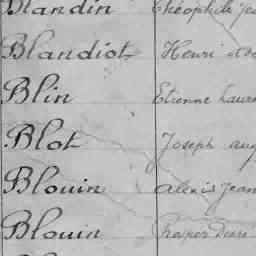 Blandin Théophile
Blandiot Henri
Blin Etienne
Blot Joseph
Blouin Alexis Jean
Blouin Prosper Désiré